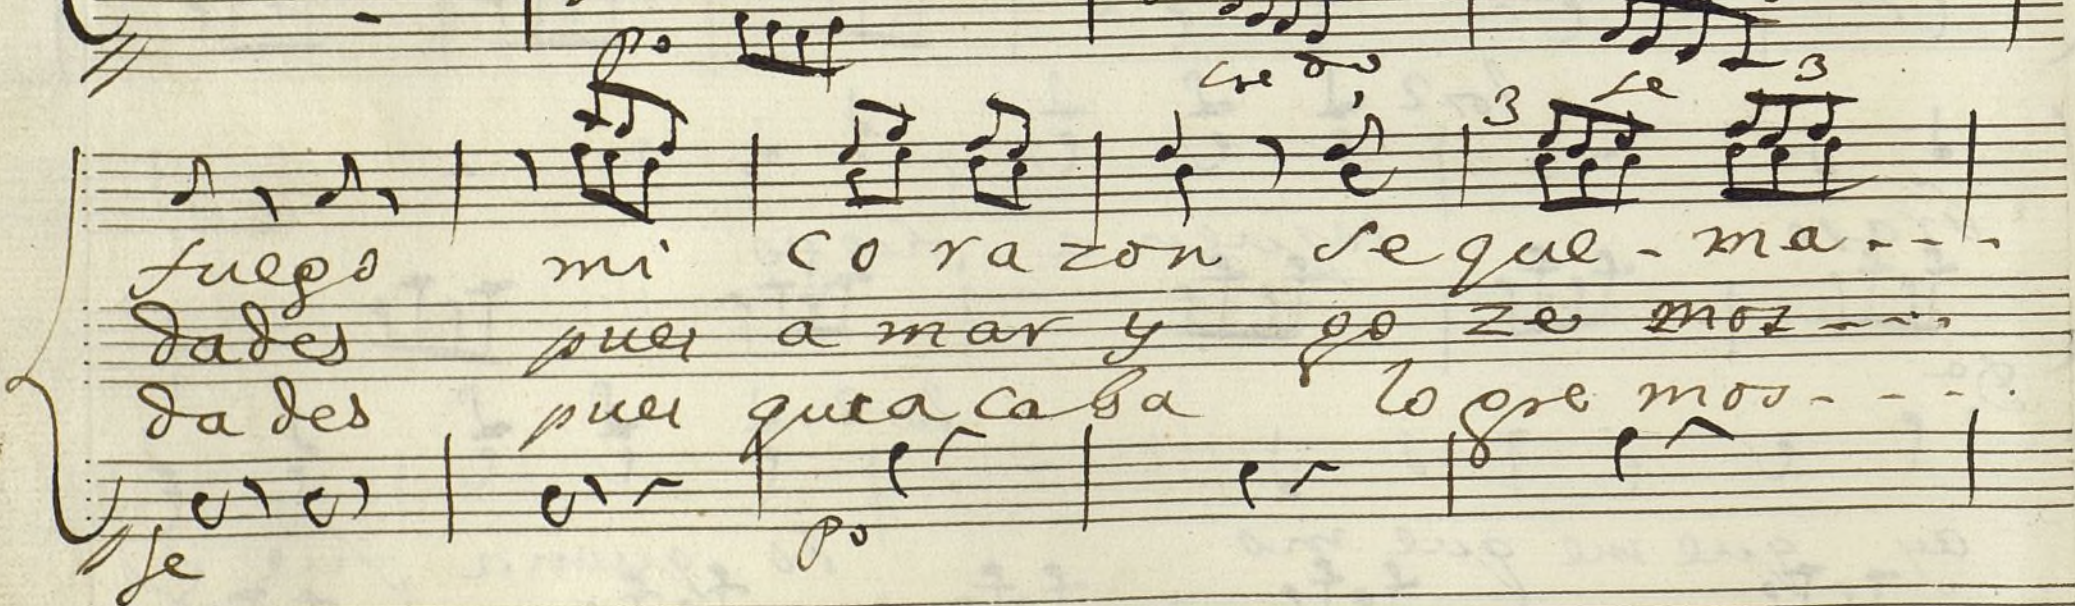 po
cre do fe
3 3
fuego mi co ra zon se que - ma - - - -
dades pues a mar y go ze mos - - - -
da des pues que a ca ba lo gre mos - - - -
po
fe